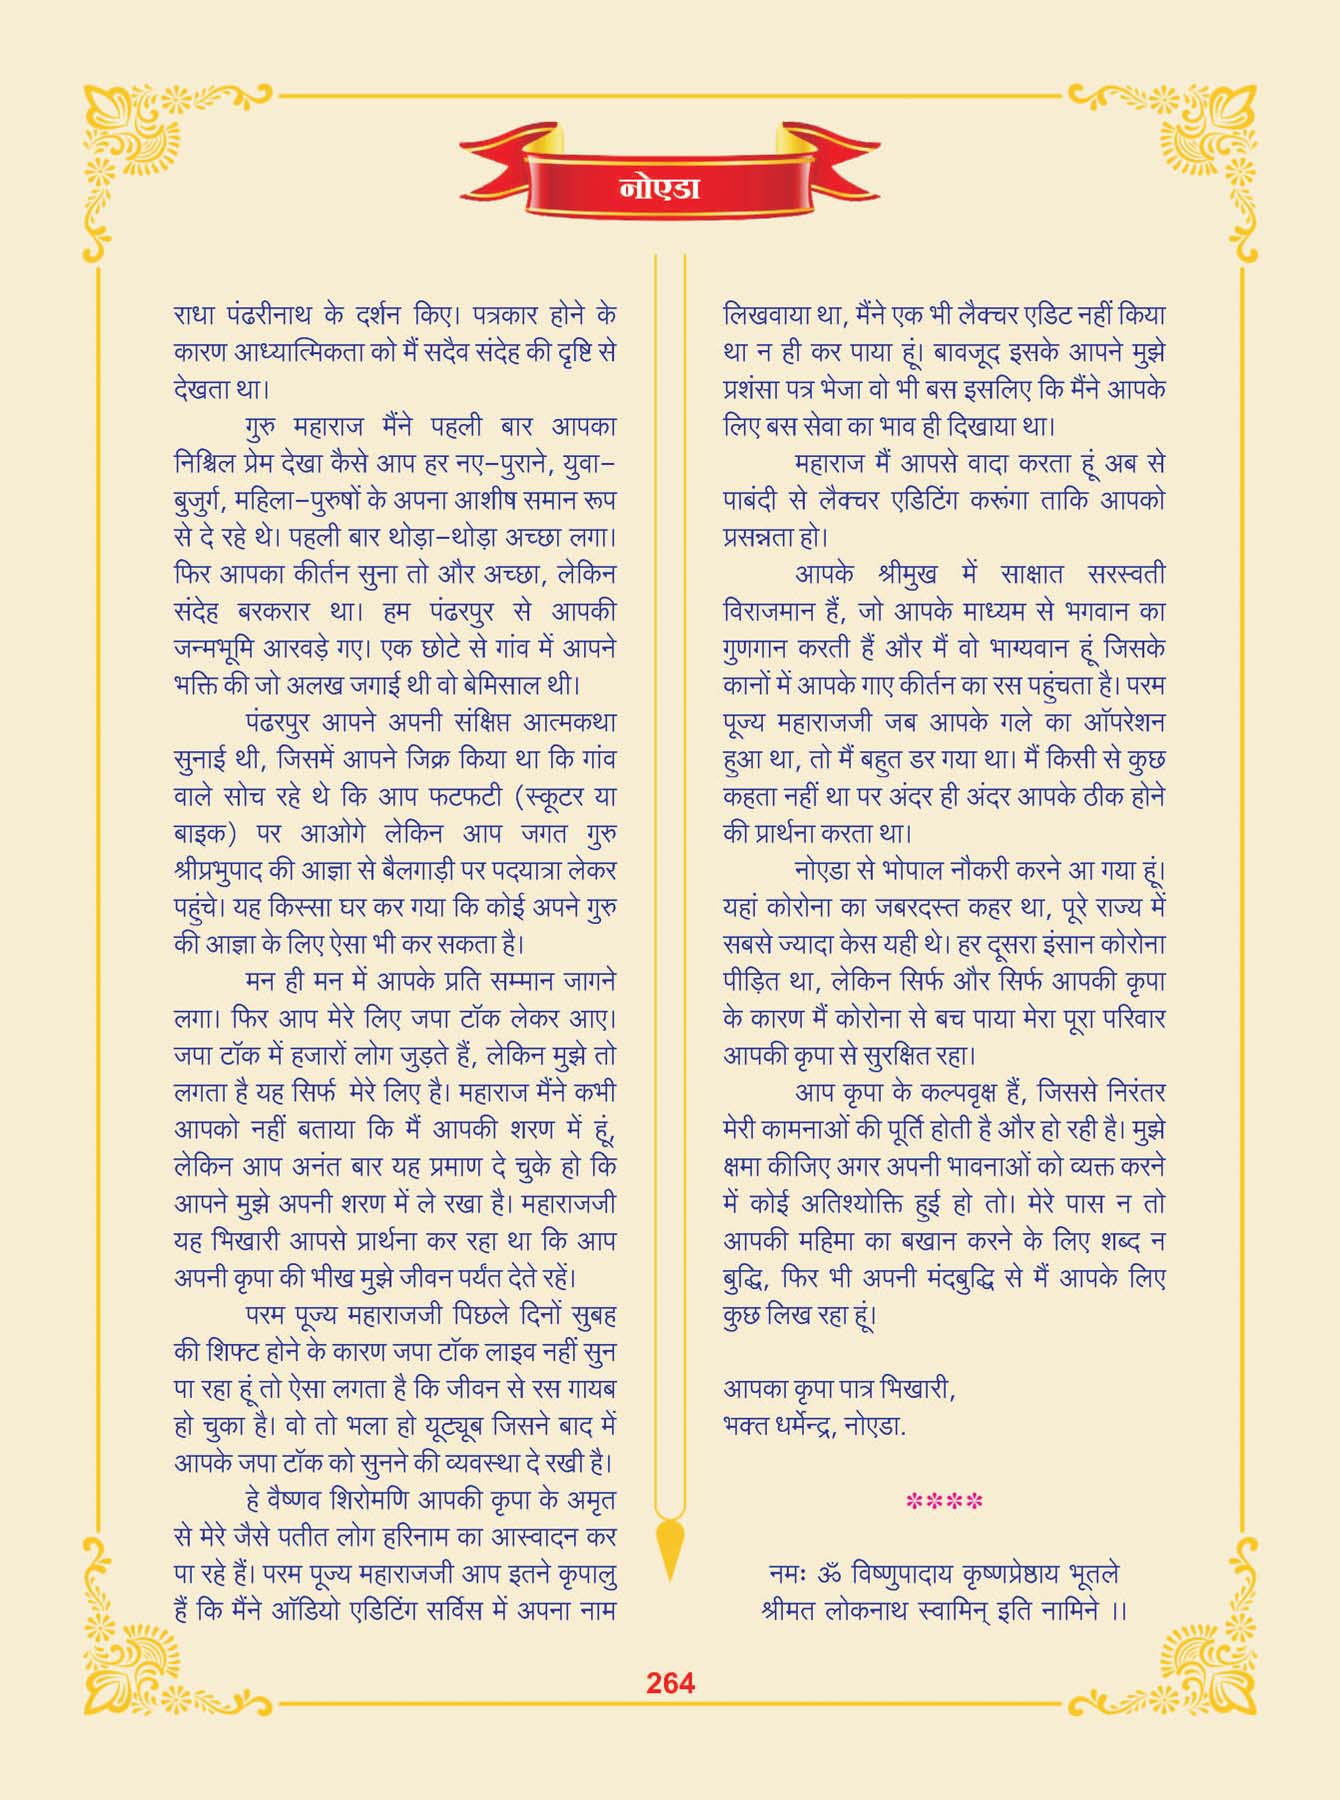 नोएडा
राधा पंढरीनाथ के दर्शन किए। पत्रकार होने के
कारण आध्यात्मिकता को मैं सदैव संदेह की दृष्टि से
देखता था।
गुरु महाराज मैंने पहली बार आपका
निश्चिल प्रेम देखा कैसे आप हर नए-पुराने, युवा-
बुजुर्ग, महिला-पुरुषों के अपना आशीष समान रूप
से दे रहे थे। पहली बार थोड़ा-थोड़ा अच्छा लगा।
फिर आपका कीर्तन सुना तो और अच्छा, लेकिन
संदेह बरकरार था। हम पंढरपुर से आपकी
जन्मभूमि आरवड़े गए। एक छोटे से गांव में आपने
भक्ति की जो अलख जगाई थी वो बेमिसाल थी।
पंढरपुर आपने अपनी संक्षिप्त आत्मकथा
सुनाई थी, जिसमें आपने जिक्र किया था कि गांव
वाले सोच रहे थे कि आप फटफटी (स्कूटर या
बाइक) पर आओगे लेकिन आप जगत गुरु
श्रीप्रभुपाद की आज्ञा से बैलगाड़ी पर पदयात्रा लेकर
पहुंचे। यह किस्सा घर कर गया कि कोई अपने गुरु
की आज्ञा के लिए ऐसा भी कर सकता है।
मन ही मन में आपके प्रति सम्मान जागने
लगा। फिर आप मेरे लिए जपा टॉक लेकर आए।
जपा टॉक में हजारों लोग जुड़ते हैं, लेकिन मुझे तो
लगता है यह सिर्फ मेरे लिए है। महाराज मैंने कभी
आपको नहीं बताया कि मैं आपकी शरण में हूं,
लेकिन आप अनंत बार यह प्रमाण दे चुके हो कि
आपने मुझे अपनी शरण में ले रखा है। महाराजजी
यह भिखारी आपसे प्रार्थना कर रहा था कि आप
अपनी कृपा की भीख मुझे जीवन पर्यंत देते रहें।
परम पूज्य महाराजजी पिछले दिनों सुबह
की शिफ्ट होने के कारण जपा टॉक लाइव नहीं सुन
पा रहा हूं तो ऐसा लगता है कि जीवन से रस गायब
हो चुका है। वो तो भला हो यूट्यूब जिसने बाद में
आपके जपा टॉक को सुनने की व्यवस्था दे रखी है।
हे वैष्णव शिरोमणि आपकी कृपा के अमृत
से मेरे जैसे पतीत लोग हरिनाम का आस्वादन कर
पा रहे हैं। परम पूज्य महाराजजी आप इतने कृपालु
हैं कि मैंने ऑडियो एडिटिंग सर्विस में अपना नाम
लिखवाया था, मैंने एक भी लैक्चर एडिट नहीं किया
था न ही कर पाया हूं। बावजूद इसके आपने मुझे
प्रशंसा पत्र भेजा वो भी बस इसलिए कि मैंने आपके
लिए बस सेवा का भाव ही दिखाया था।
महाराज मैं आपसे वादा करता हूं अब से
पाबंदी से लैक्चर एडिटिंग करूंगा ताकि आपको
प्रसन्नता हो।
आपके श्रीमुख में साक्षात सरस्वती
विराजमान हैं, जो आपके माध्यम से भगवान का
गुणगान करती हैं और मैं वो भाग्यवान हूं जिसके
कानों में आपके गाए कीर्तन का रस पहुंचता है। परम
पूज्य महाराजजी जब आपके गले का ऑपरेशन
हुआ था, तो मैं बहुत डर गया था। मैं किसी से कुछ
कहता नहीं था पर अंदर ही अंदर आपके ठीक होने
की प्रार्थना करता था।
नोएडा से भोपाल नौकरी करने आ गया हूं।
यहां कोरोना का जबरदस्त कहर था, पूरे राज्य में
सबसे ज्यादा केस यही थे। हर दूसरा इंसान कोरोना
पीड़ित था, लेकिन सिर्फ और सिर्फ आपकी कृपा
के कारण मैं कोरोना से बच पाया मेरा पूरा परिवार
आपकी कृपा से सुरक्षित रहा।
आप कृपा के कल्पवृक्ष हैं, जिससे निरंतर
मेरी कामनाओं की पूर्ति होती है और हो रही है। मुझे
क्षमा कीजिए अगर अपनी भावनाओं को व्यक्त करने
में कोई अतिश्योक्ति हुई हो तो। मेरे पास न तो
आपकी महिमा का बखान करने के लिए शब्द न
बुद्धि, फिर भी अपनी मंदबुद्धि से मैं आपके लिए
कुछ लिख रहा हूं।
आपका कृपा पात्र भिखारी,
भक्त धर्मेन्द्र, नोएडा.
****
नमः ॐ विष्णुपादाय कृष्णप्रेष्ठाय भूतले
श्रीमत लोकनाथ स्वामिन् इति नामिने ।।
264